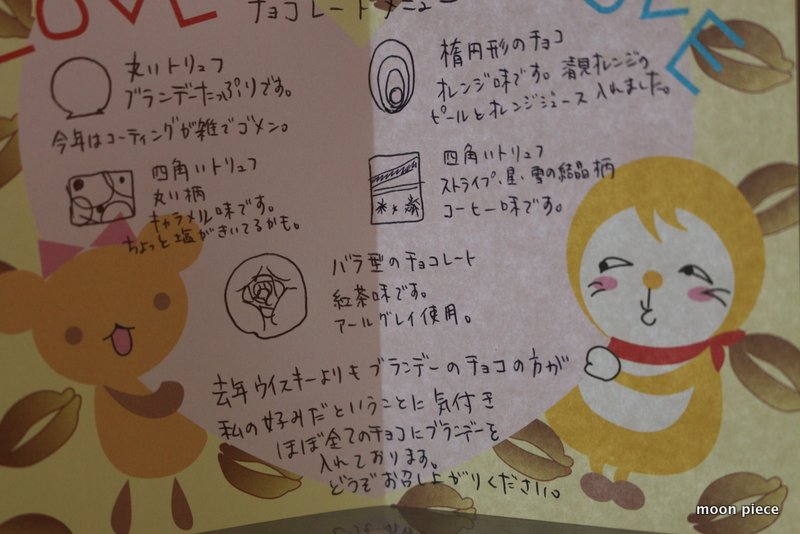 LOVE
チョコレートメニュー
丸いトリュフ
ブランデーたっぷりです。
今年はコーティングが雑でゴメン。
楕円形のチョコ
オレンジ味です。清見オレンジの
ピールとオレンジジュース入れました。
四角いトリュフ
丸い柄
キャラメル味です。
ちょっと塩がきいてるかも。
四角いトリュフ
ストライプ、星、雪の結晶柄
コーヒー味です。
バラ型のチョコレート
紅茶味です。
アールグレイ使用。
去年ウイスキーよりもブランデーのチョコの方が
私の好みだということに気付き
ほぼ全てのチョコにブランデーを
入れております。
どうぞお召し上がりください。
moon piece